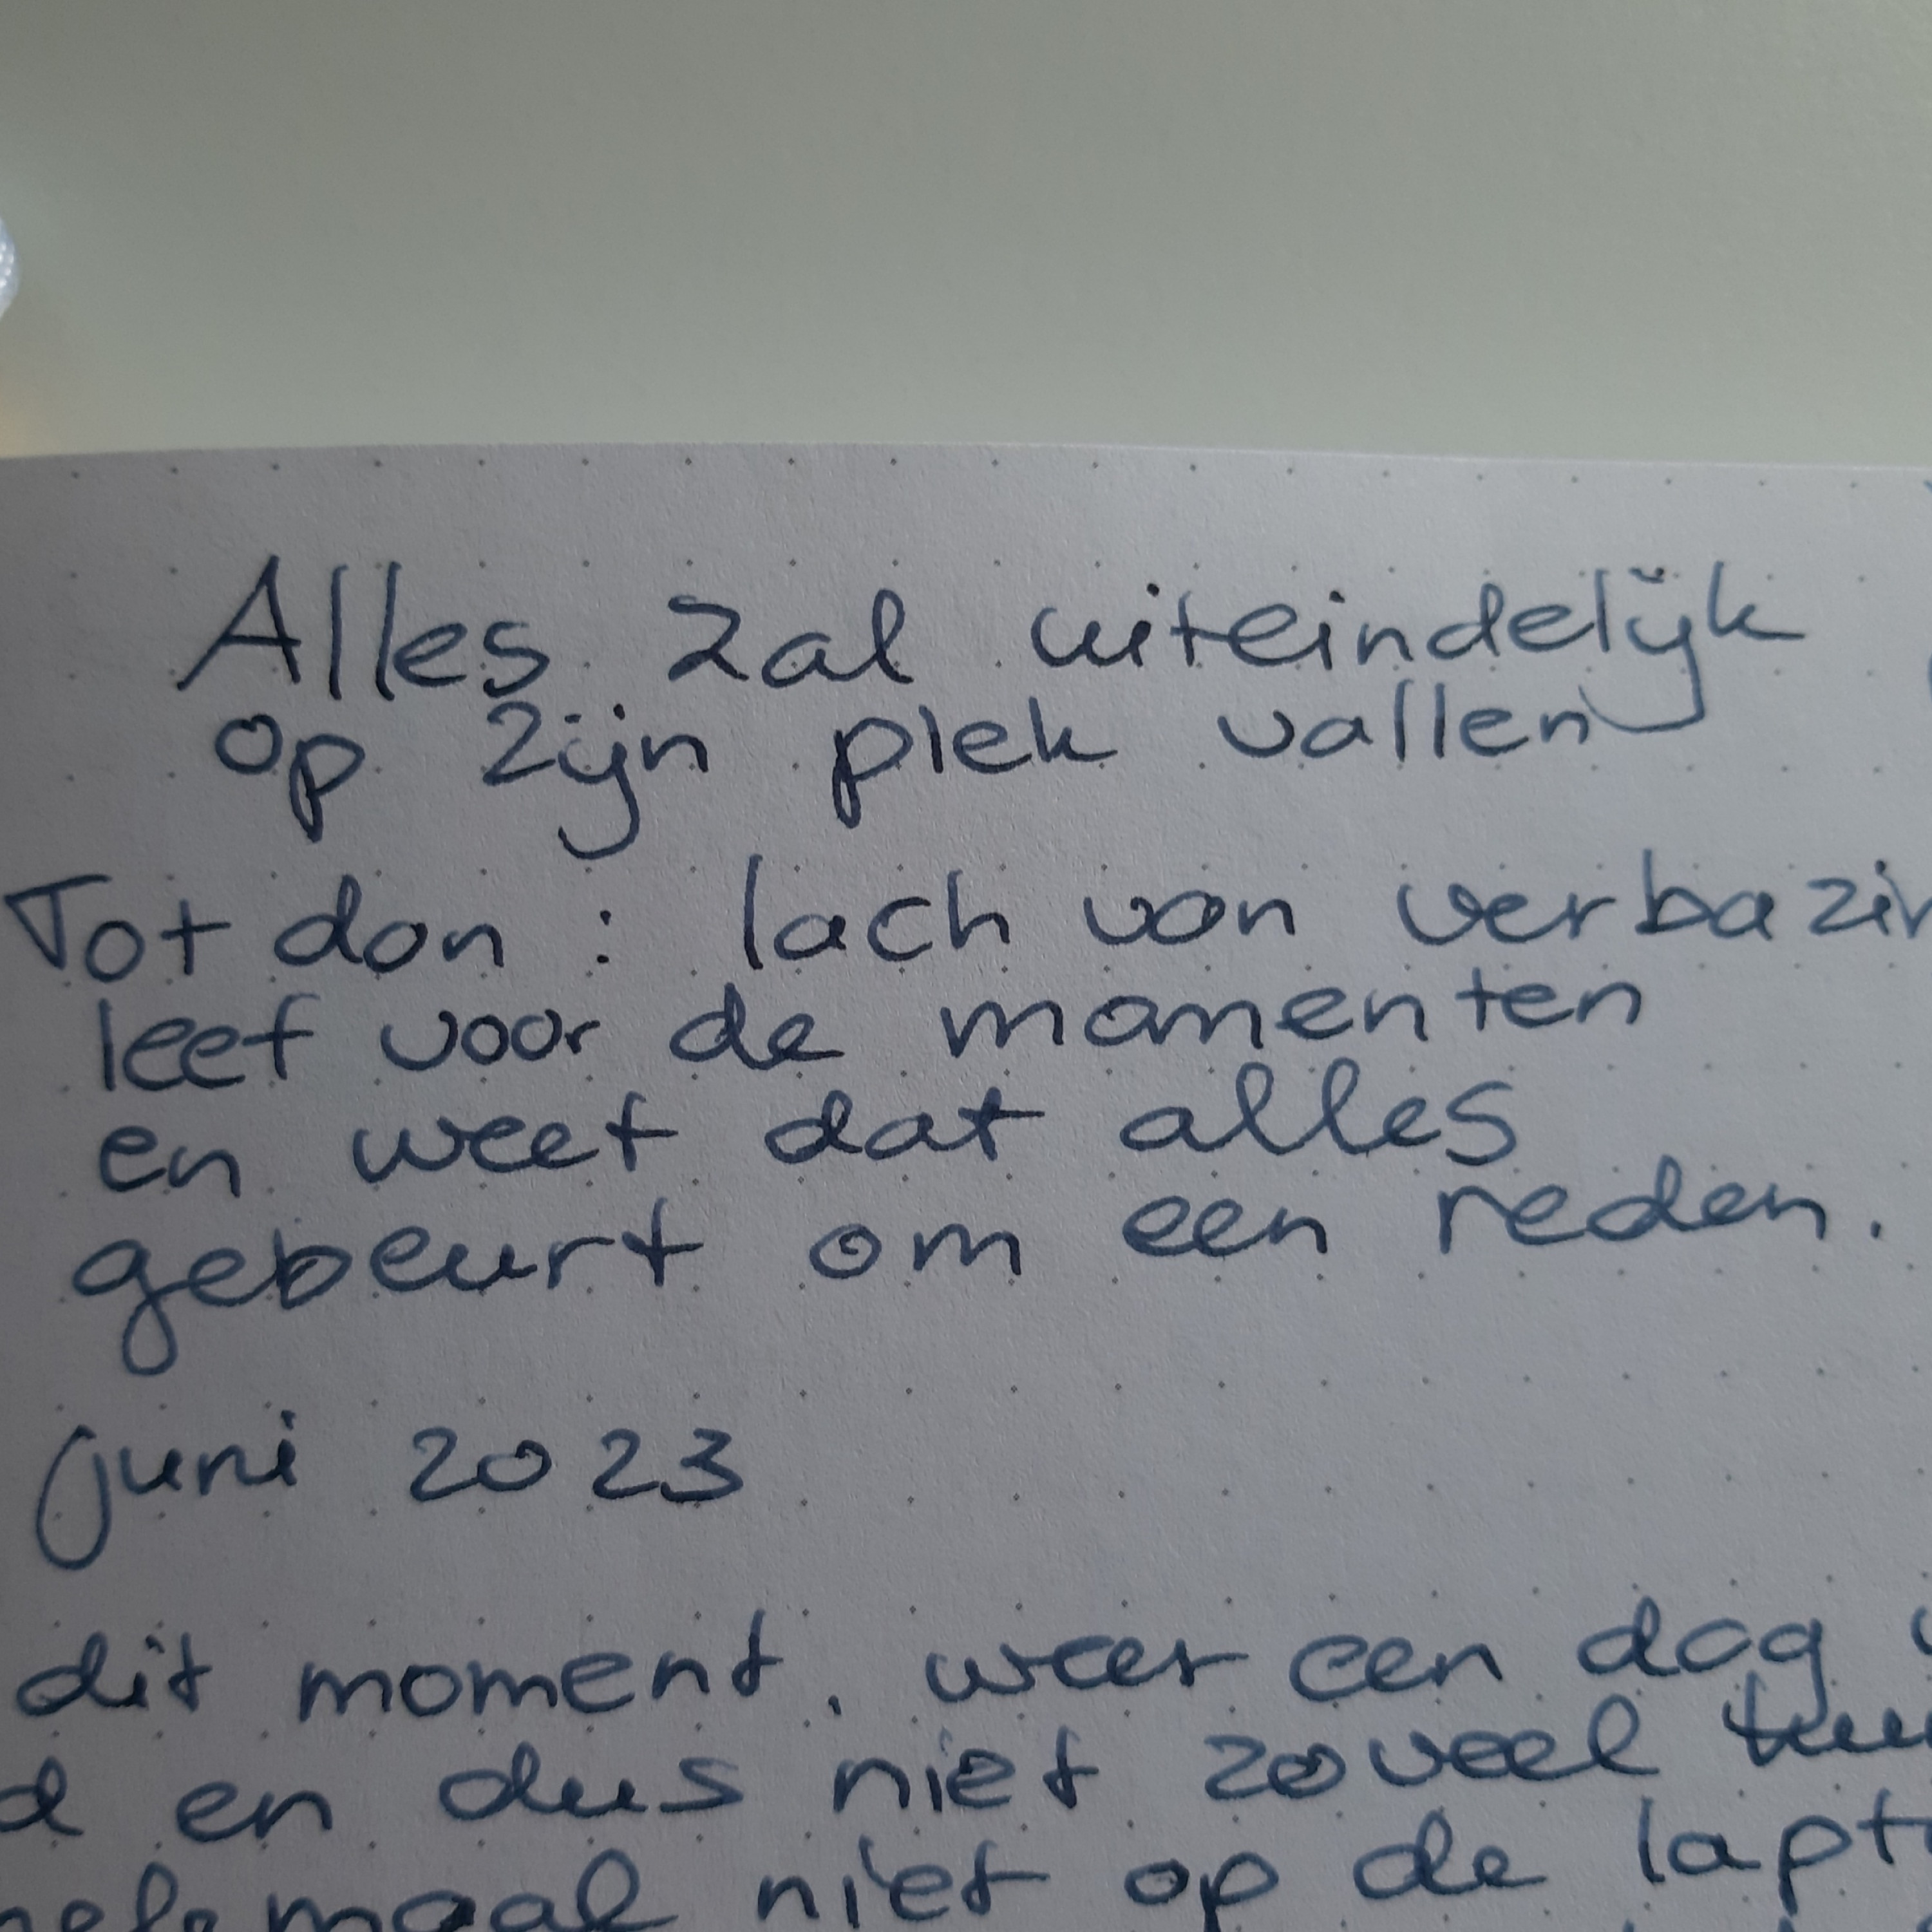 Alles zal uiteindelijk
op zijn plek vallen
Tot dan : lach van verbazin
leef voor de momenten
en weet dat alles
gebeurt om een reden.
juni 2023
dit moment. weer een dag
d en dus niet zoveel
helemaal niet op de lapt